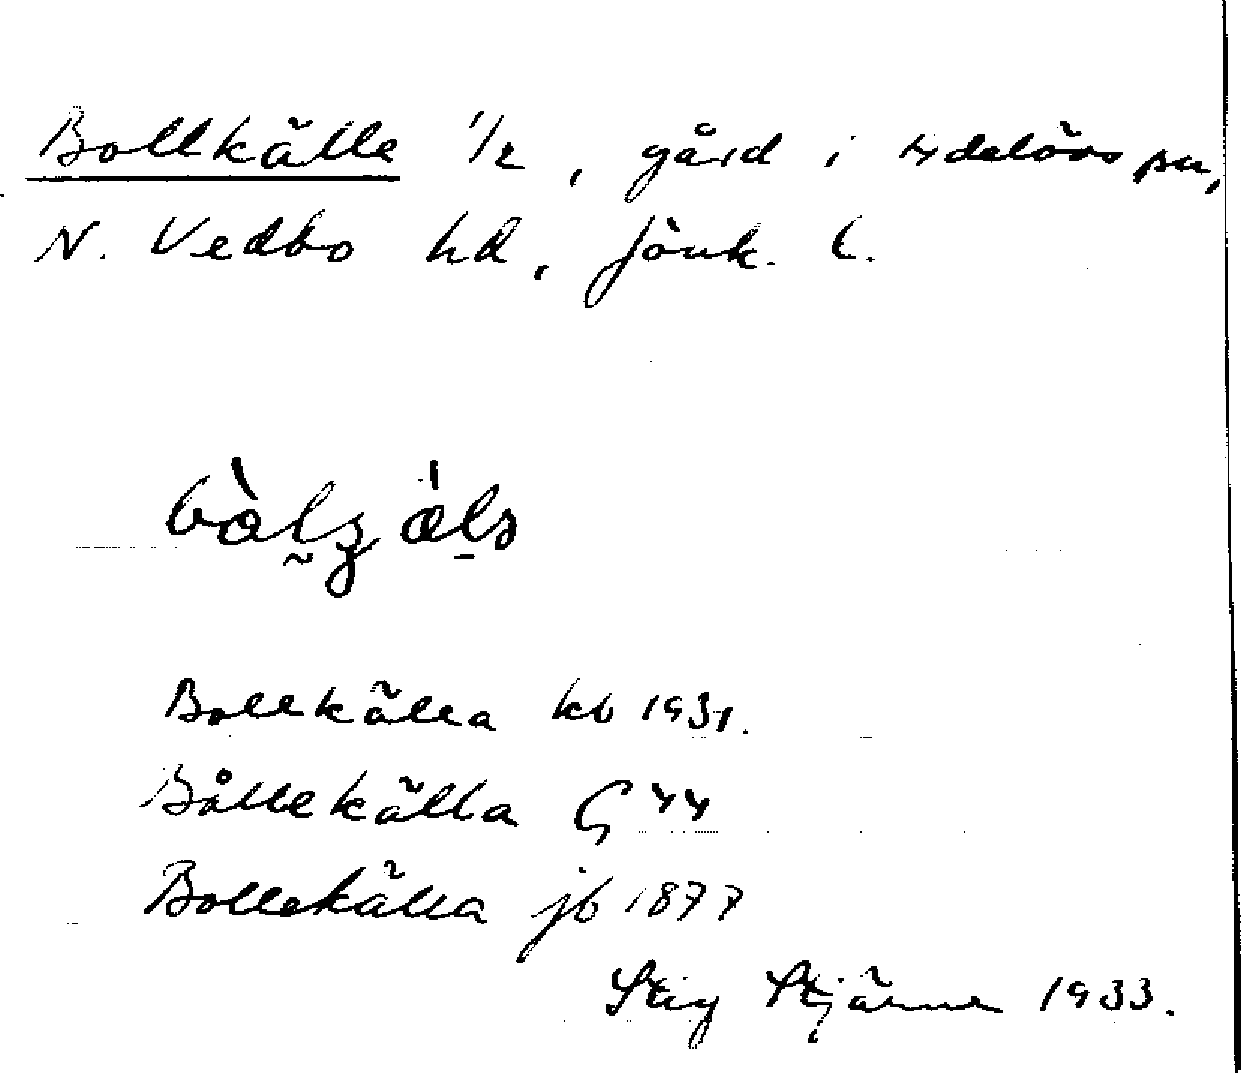 Bollkälle 1/2, gård i Adelövs sn,
N. Vedbo hd, Jönk. l.
Bollkälla kb 1931.
Bållekälla G 44
Bollekälla jb 1877
Stig Stjärne 1933.